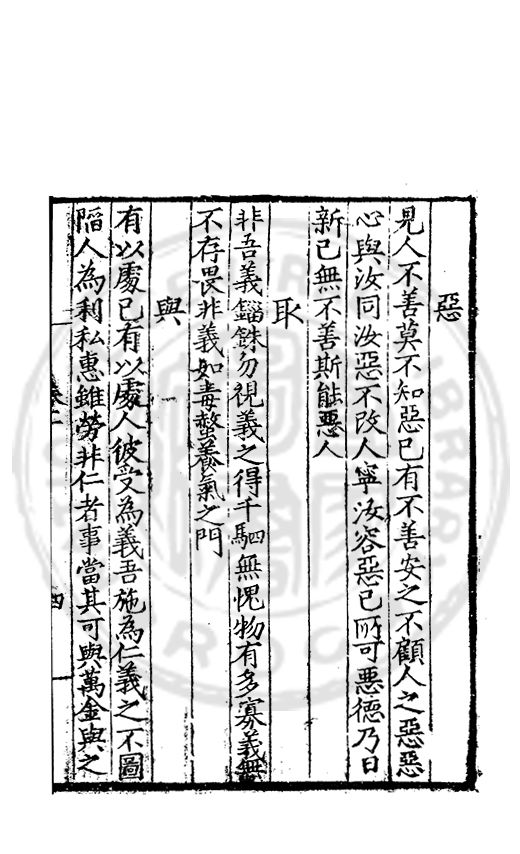 惡
見人不善莫不知惡己有不善安之不顧人之惡惡
心與汝同汝惡不改人寧汝容惡己所可惡德乃日
新己無不善斯能惡人
取
非吾義錙銖勿視義之得千駟無愧物有多寡義無
不存畏非義如毒螫養氣之門
與
有以處己有以處人彼受為義吾施為仁義之不圖
陷人為利私惠雖勞非仁者事當其可與萬金與之
四